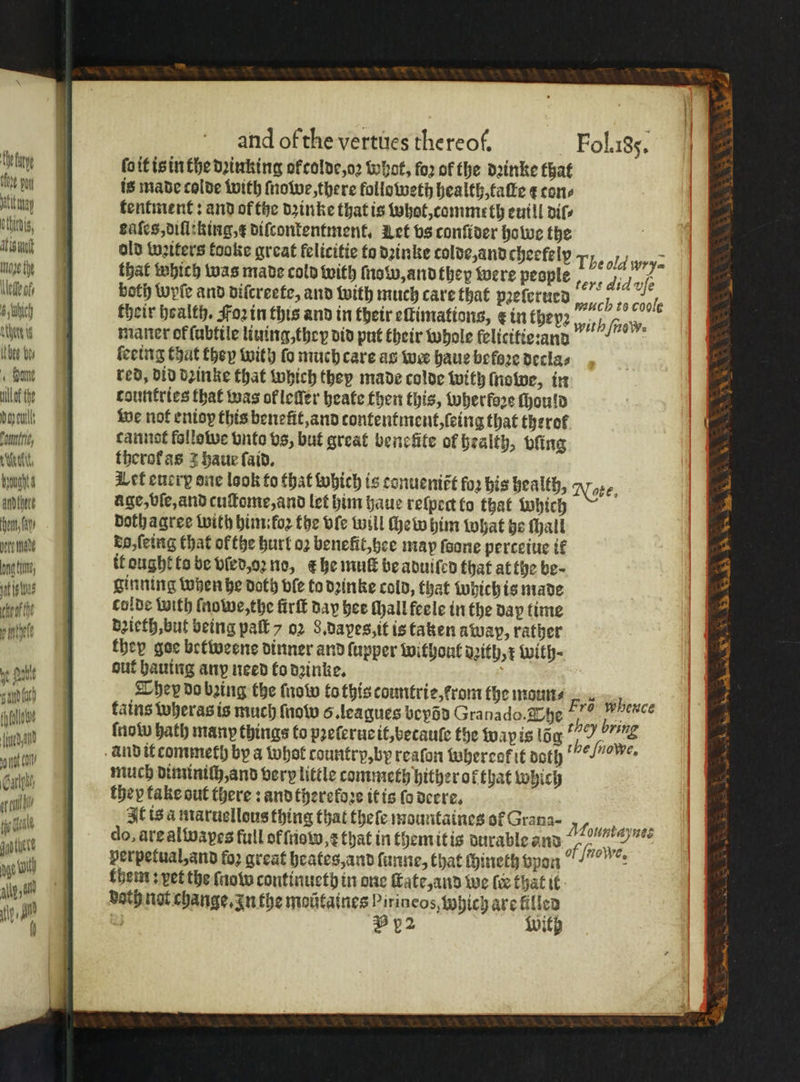 and of the vertues thereof. Fol.185.
so it is in the drinking of colde, or whot, for of the drinke that
is made colde with snowe, there followeth health, taste & con-
tentment: and of the drinke that is whot, commeth euill dis-
eases, disliking, & discontentment. Let vs consider howe the
old writers tooke great felicitie to drinke colde, and cheefely
that which was made cold with snow, and they were people
both wyse and discreete, and with much care that preserued
their health. For in this and in their estimations, & in theyr
maner of subtile liuing, they did put their whole felicitie: and
seeing that they with so much care as wee haue before decla-
red, did drinke that which they made colde with snowe, in
countries that was of lesser heate then this, wherfore should
we not enioy this benefit, and contentment, seing that therof
cannot followe vnto vs, but great benefite of health, vsing
therof as I haue said.
The old wry-
ters did vse
much to coole
with snow.
Let euery one look to that which is conueniēt for his health,
age, vse, and custome, and let him haue respect to that which
doth agree with him: for the vse will shew him what he shall
do, seing that of the hurt or benefit, hee may soone perceiue if
it ought to be vsed, or no, & he must be aduised that at the be-
ginning when he doth vse to drinke cold, that which is made
colde with snowe, the first day hee shall feele in the day time
drieth, but being past 7 or 8. dayes, it is taken away, rather
they goe betweene dinner and supper without drith, & with-
out hauing any need to drinke.
Note.
They do bring the snow to this countrie, from the moun-
tains wheras is much snow 6. leagues beyōd Granado. The
snow hath many things to preserue it, because the way is lōg
and it commeth by a whot country, by reason whereof it doth
much diminish, and very little commeth hither of that which
they take out there: and therefore it is so deere.
Frō whence
they bring
the snowe.
It is a maruellous thing that these mountaines of Grana-
do, are alwayes full of snow, & that in them it is durable and
perpetual, and for great heates, and sunne, that shineth vpon
them: yet the snow continueth in one state, and we see that it
doth not change. In the moūtaines Pirineos, which are filled
Mountaynes
of snowe.
Pp2 with